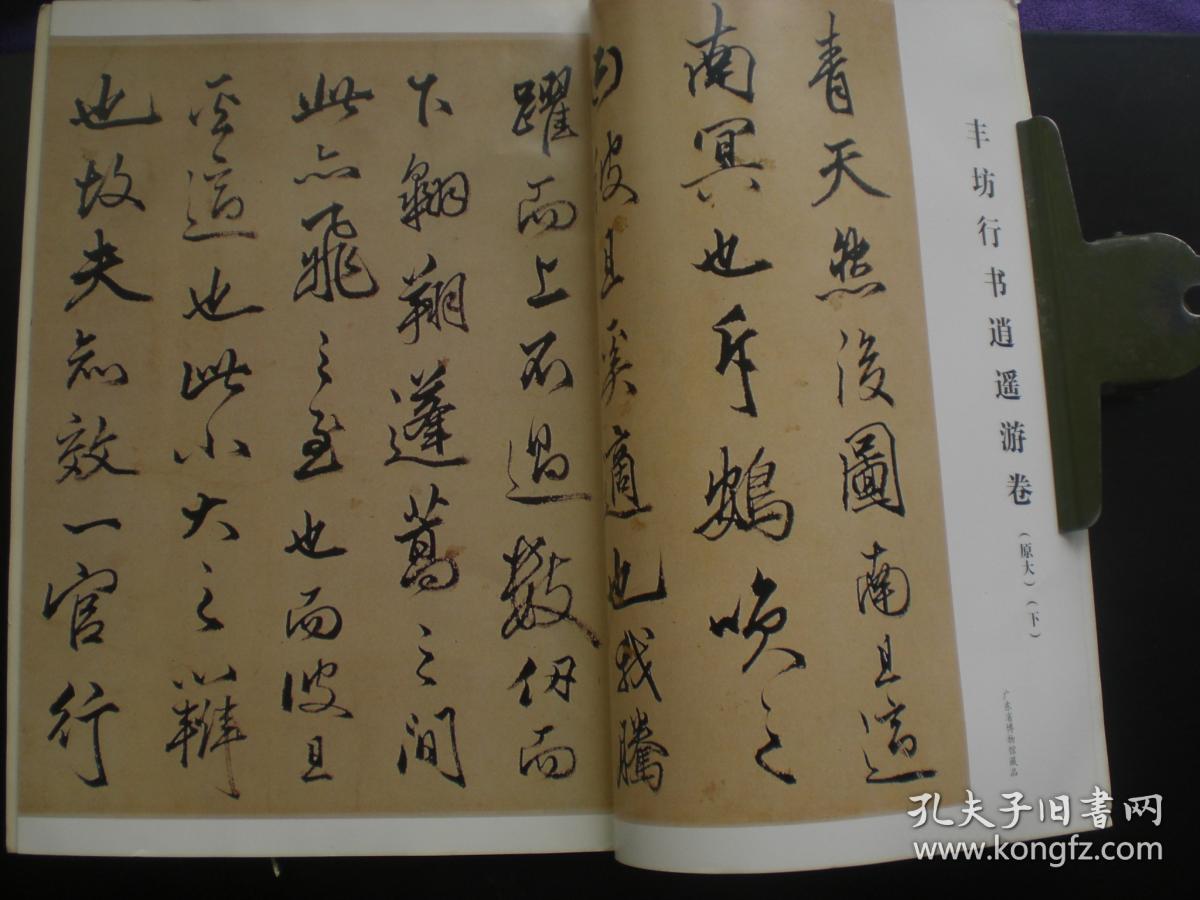 丰坊行书逍遥游卷（原大）（下）
广东省博物馆藏品
青天然後圖南且適
南冥也斥鴳咲之
曰彼且奚適也我騰
躍而上不過數仞而
下翱翔蓬蒿之間
此亦飛之至也而彼且
奚適也此小大之辯
也故夫知效一官行
孔夫子旧书网
www.kongfz.com